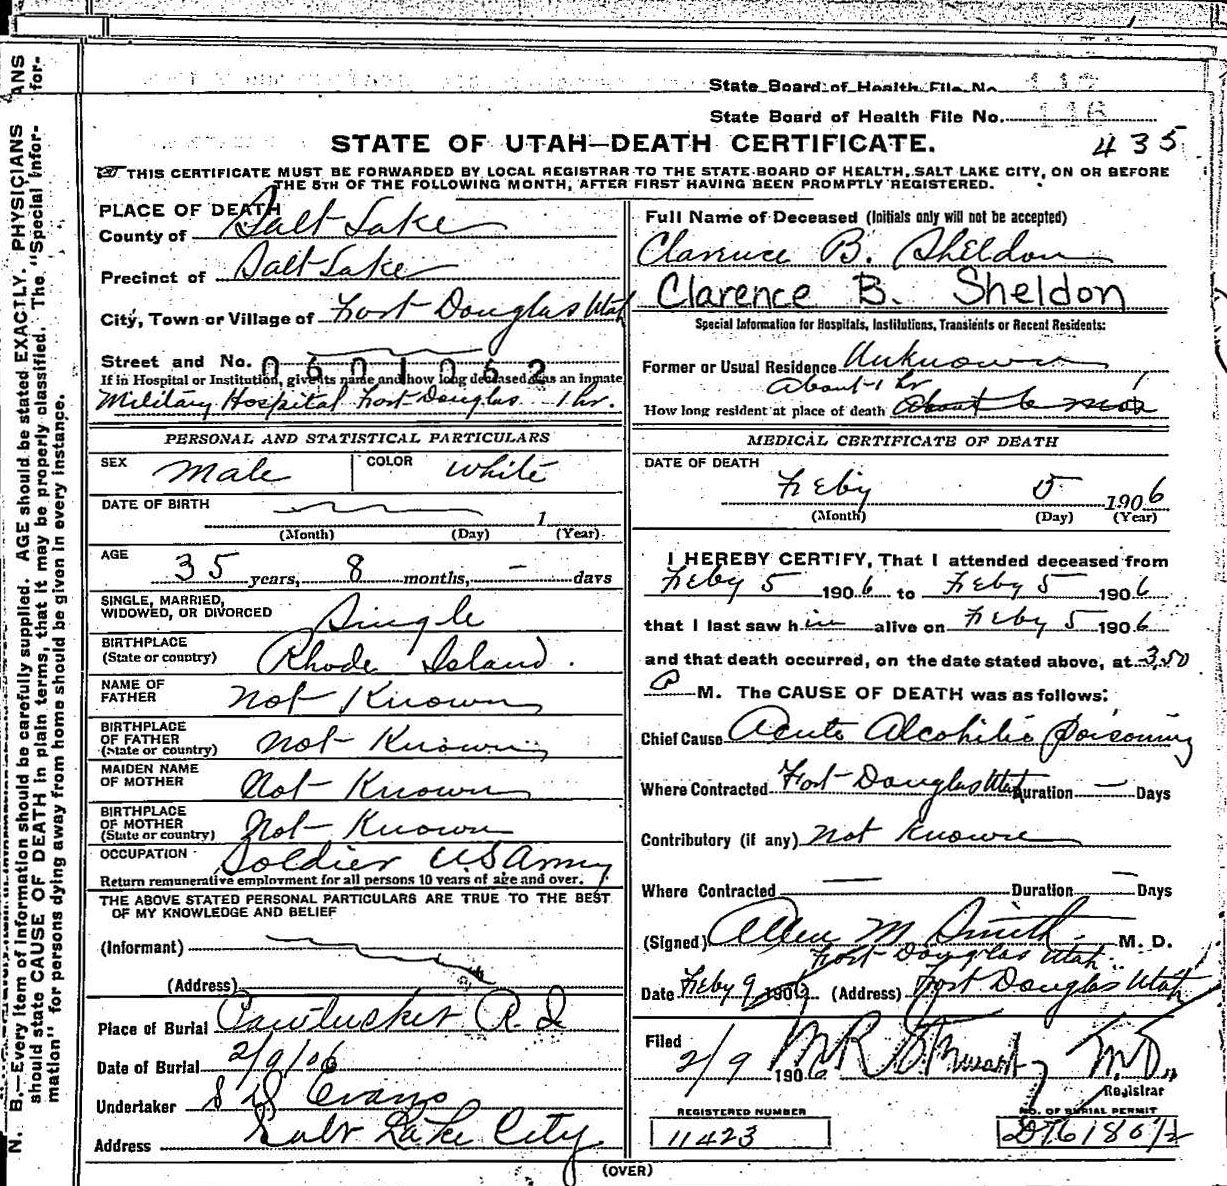 State Board of Health File No.
State Board of Health File No. 116
STATE OF UTAH—DEATH CERTIFICATE.
435
THIS CERTIFICATE MUST BE FORWARDED BY LOCAL REGISTRAR TO THE STATE BOARD OF HEALTH, SALT LAKE CITY, ON OR BEFORE
THE 5TH OF THE FOLLOWING MONTH, AFTER FIRST HAVING BEEN PROMPTLY REGISTERED.
N. B.—Every item of information should be carefully supplied. AGE should be stated EXACTLY. PHYSICIANS
should state CAUSE OF DEATH in plain terms, that it may be properly classified. The "Special Infor-
mation" for persons dying away from home should be given in every instance.
ANS
for-
PLACE OF DEATH
County of Salt Lake
Precinct of Salt Lake
City, Town or Village of Fort Douglas Utah
Street and No.
0601052
If in Hospital or Institution, give its name and how long deceased was an inmate
Military Hospital Fort Douglas 1 hr.
PERSONAL AND STATISTICAL PARTICULARS
SEX Male COLOR White
DATE OF BIRTH
1
(Month) (Day) (Year)
AGE
35 years, 8 months, — days
SINGLE, MARRIED,
WIDOWED, OR DIVORCED Single
BIRTHPLACE
(State or country) Rhode Island.
NAME OF
FATHER Not Known
BIRTHPLACE
OF FATHER
(State or country) Not Known
MAIDEN NAME
OF MOTHER Not Known
BIRTHPLACE
OF MOTHER
(State or country) Not Known
OCCUPATION Soldier US Army
Return remunerative employment for all persons 10 years of age and over.
THE ABOVE STATED PERSONAL PARTICULARS ARE TRUE TO THE BEST
OF MY KNOWLEDGE AND BELIEF
(Informant)
(Address)
Place of Burial Pawtusket R.I
Date of Burial 2/9/06
Undertaker S D Evans
Address Salt Lake City
Full Name of Deceased (Initials only will not be accepted)
Clarence B. Sheldon
Clarence B. Sheldon
Special Information for Hospitals, Institutions, Transients or Recent Residents:
Former or Usual Residence Unknown
About 1 hr
How long resident at place of death About 6 mos
MEDICAL CERTIFICATE OF DEATH
DATE OF DEATH
Feby 5 1906
(Month) (Day) (Year)
I HEREBY CERTIFY, That I attended deceased from
Feby 5 1906 to Feby 5 1906
that I last saw him alive on Feby 5 1906
and that death occurred, on the date stated above, at 3.50
P M. The CAUSE OF DEATH was as follows:
Chief Cause Acute Alcoholic Poisoning
Where Contracted Fort Douglas Utah Duration — Days
Contributory (if any) Not Known
Where Contracted — Duration — Days
(Signed) Allen M Smith M. D.
Fort Douglas Utah
Date Feby 9 1906 (Address) Fort Douglas Utah
Filed
2/9 1906 M.D.
Registrar
REGISTERED NUMBER
11423
NO. OF BURIAL PERMIT
(OVER)